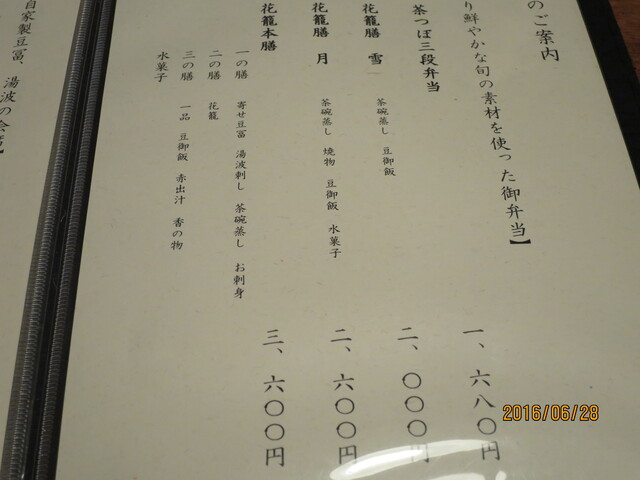 のご案内
り鮮やかな旬の素材を使った御弁当】
茶つぼ三段弁当 一、六八〇円
花籠膳 雪 二、〇〇〇円
茶碗蒸し 豆御飯
花籠膳 月 二、六〇〇円
茶碗蒸し 焼物 豆御飯 水菓子
花籠本膳 三、六〇〇円
一の膳 寄せ豆冨 湯波刺し 茶碗蒸し お刺身
二の膳 花籠
三の膳 一品 豆御飯 赤出汁 香の物
水菓子
自家製豆冨、湯波の会席】
2016/06/28